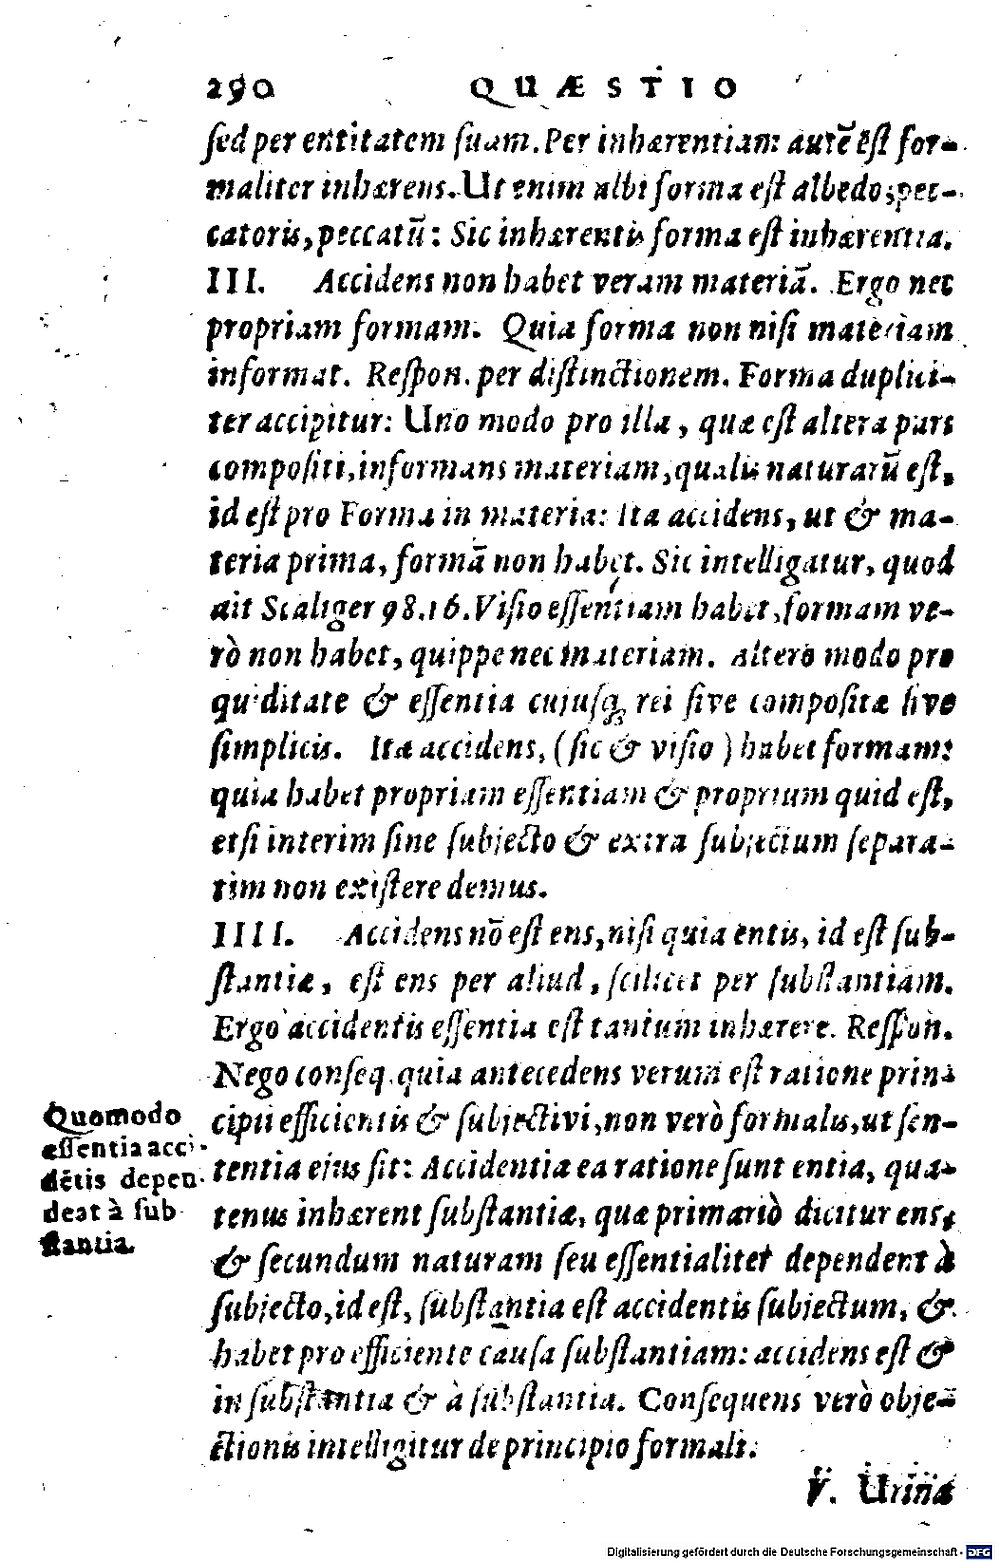 290 QUÆSTIO
ſed per entitatem ſuam. Per inhærentiam autē eſt for-
maliter inhærens. Ut enim albi forma eſt albedo, pec-
catoris, peccatū: Sic inhærentis forma eſt inhærentia.
III. Accidens non habet veram materiā. Ergo nec
propriam formam. Quia forma non niſi materiam
informat. Reſpon. per diſtinctionem. Forma duplici-
ter accipitur: Uno modo pro illa, quæ eſt altera pars
compoſiti, informans materiam, qualis naturarū eſt,
id eſt pro Forma in materia: Ita accidens, ut & ma-
teria prima, formā non habet. Sic intelligatur, quod
ait Scaliger 98.16. Viſio eſſentiam habet, formam ve-
rò non habet, quippe nec materiam. Altero modo pro
quiditate & eſſentia cujuſq; rei ſive compoſitæ ſive
ſimplicis. Ita accidens, (ſic & viſio) habet formam:
quia habet propriam eſſentiam & proprium quid eſt,
etſi interim ſine ſubjecto & extra ſubjectum ſepara-
tim non exiſtere demus.
IIII. Accidens nō eſt ens, niſi quia entis, id eſt ſub-
ſtantiæ, eſt ens per aliud, ſcilicet per ſubſtantiam.
Ergo accidentis eſſentia eſt tantum inhærere. Reſpon.
Nego conſeq. quia antecedens verum eſt ratione prin-
cipii efficientis & ſubjectivi, non verò formalis, ut ſen-
tentia ejus ſit: Accidentia ea ratione ſunt entia, qua-
tenus inhærent ſubſtantiæ, quæ primariò dicitur ens,
& ſecundum naturam ſeu eſſentialiter dependent à
ſubjecto, id eſt, ſubſtantia eſt accidentis ſubjectum, &
habet pro efficiente cauſa ſubſtantiam: accidens eſt &
in ſubſtantia & à ſubſtantia. Conſequens verò obje-
ctionis intelligitur de principio formali.
V. Urinæ
Quomodo
eſſentia acci-
dētis depen-
deat à ſub
ſtantia.
Digitalisierung gefördert durch die Deutsche Forschungsgemeinschaft - DFG